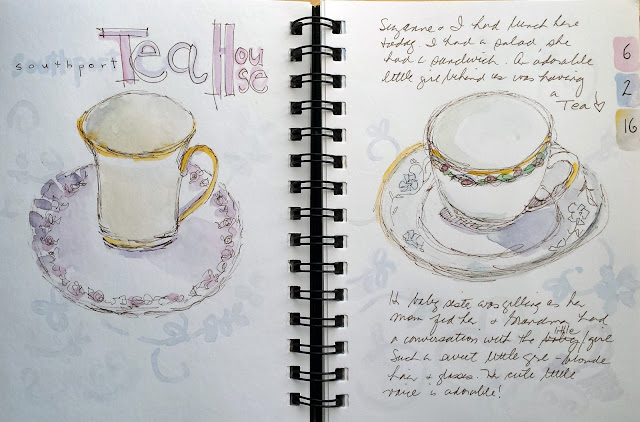 southport Tea House
Suzanne & I had lunch here
today. I had a salad, she
had a sandwich. An adorable
little girl behind us was having
a
Tea
6
2
16
baby sister was yelling as her
mom fed her, & Grandma had
a conversation with the little girl
Such a sweet little girl - blonde
hair & glasses. Her cute little
voice is adorable!